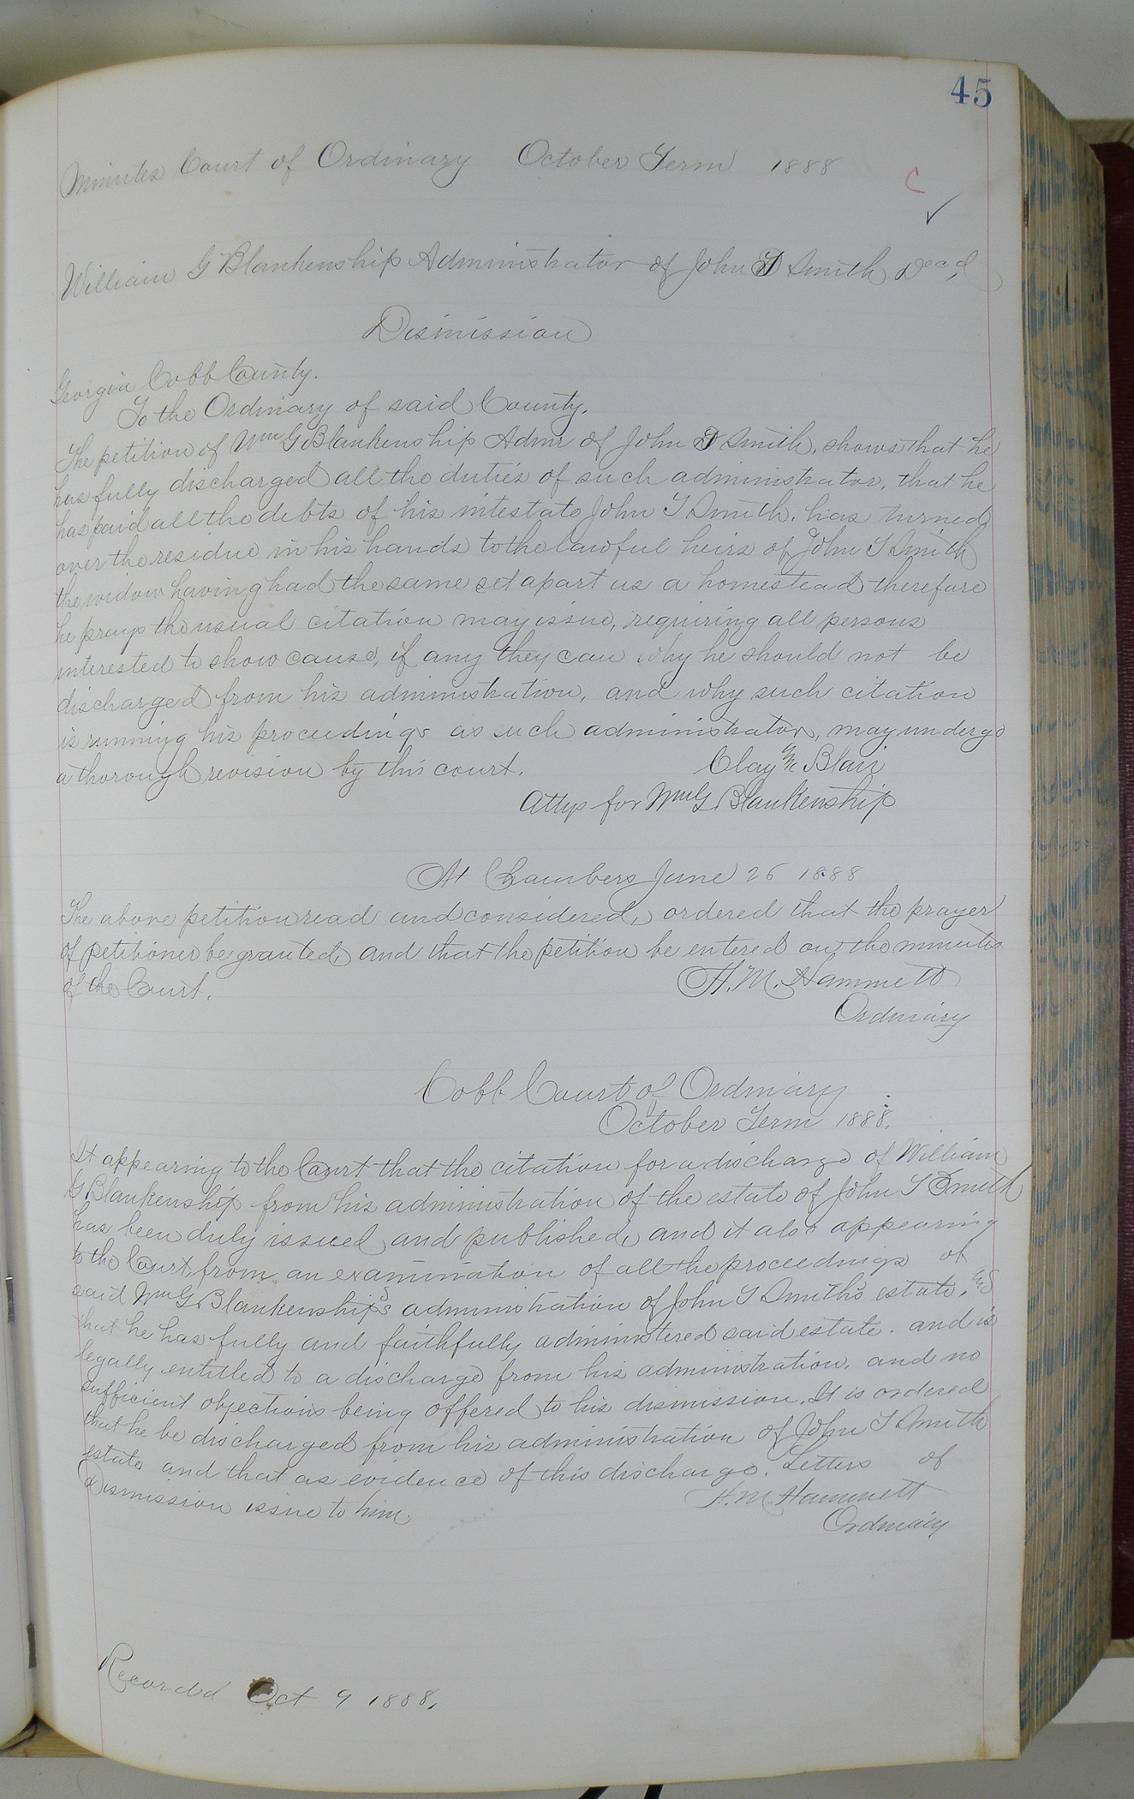 45
Minutes Court of Ordinary October Term 1888
C
William G Blankenship Administrator of John T Smith Decd,
Dismission
Georgia Cobb County.
To the Ordinary of said County.
The petition of Wm G Blankenship Admr of John T Smith, shows that he
has fully discharged all the duties of such administrator, that he
has paid all the debts of his intestate John T Smith, has turned
over the residue in his hands to the lawful heirs of John T Smith
the widow having had the same set apart as a homestead therefore
he prays the usual citation may issue, requiring all persons
interested to show cause, if any they can why he should not be
discharged from his administration, and why such citation
is running his proceedings as such administrator, may undergo
a thorough revision by this court.
Clay & Blair
Attys for Wm G. Blankenship
At Chambers June 26 1888
The above petition read and considered, ordered that the prayer
of petitioner be granted, and that the petition be entered on the minutes
of the Court.
H. M. Hammett
Ordinary
Cobb Court of Ordinary
October Term 1888.
It appearing to the Court that the citation for a discharge of William
G Blankenship from his administration of the estate of John T Smith
has been duly issued and published, and it also appearing
to the Court, from an examination of all the proceedings of
said Wm G. Blankenship's administration of John T Smith's estate,
that he has fully and faithfully administered said estate. and is
legally entitled to a discharge from his administration. and no
sufficient objections being offered to his dismission. It is ordered
that he be discharged from his administration of John T Smith
estate and that as evidence of this discharge. Letters of
Dismission issue to him
H. M. Hammett
Ordinary
Recorded Oct 9 1888.